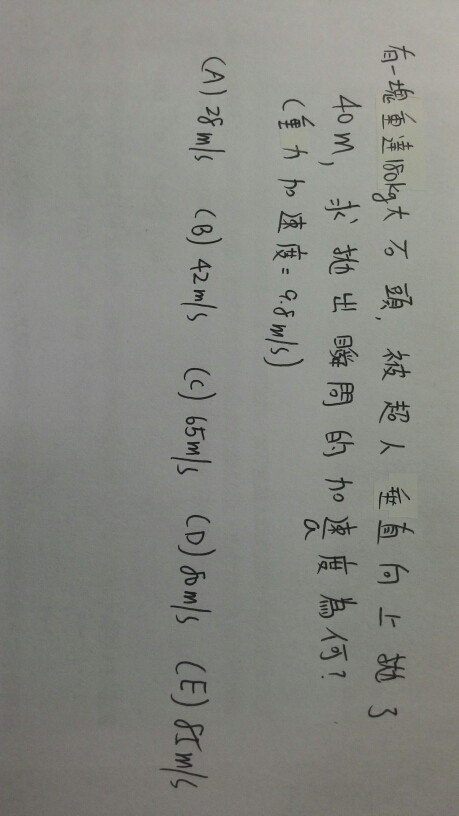 有一塊重達180kg大石頭, 被超人垂直向上拋了
40m, 求拋出瞬間的加速度為何?
a
(重力加速度=9.8m/s)
(A) 28m/s (B) 42m/s (C) 65m/s (D) 80m/s (E) 85m/s